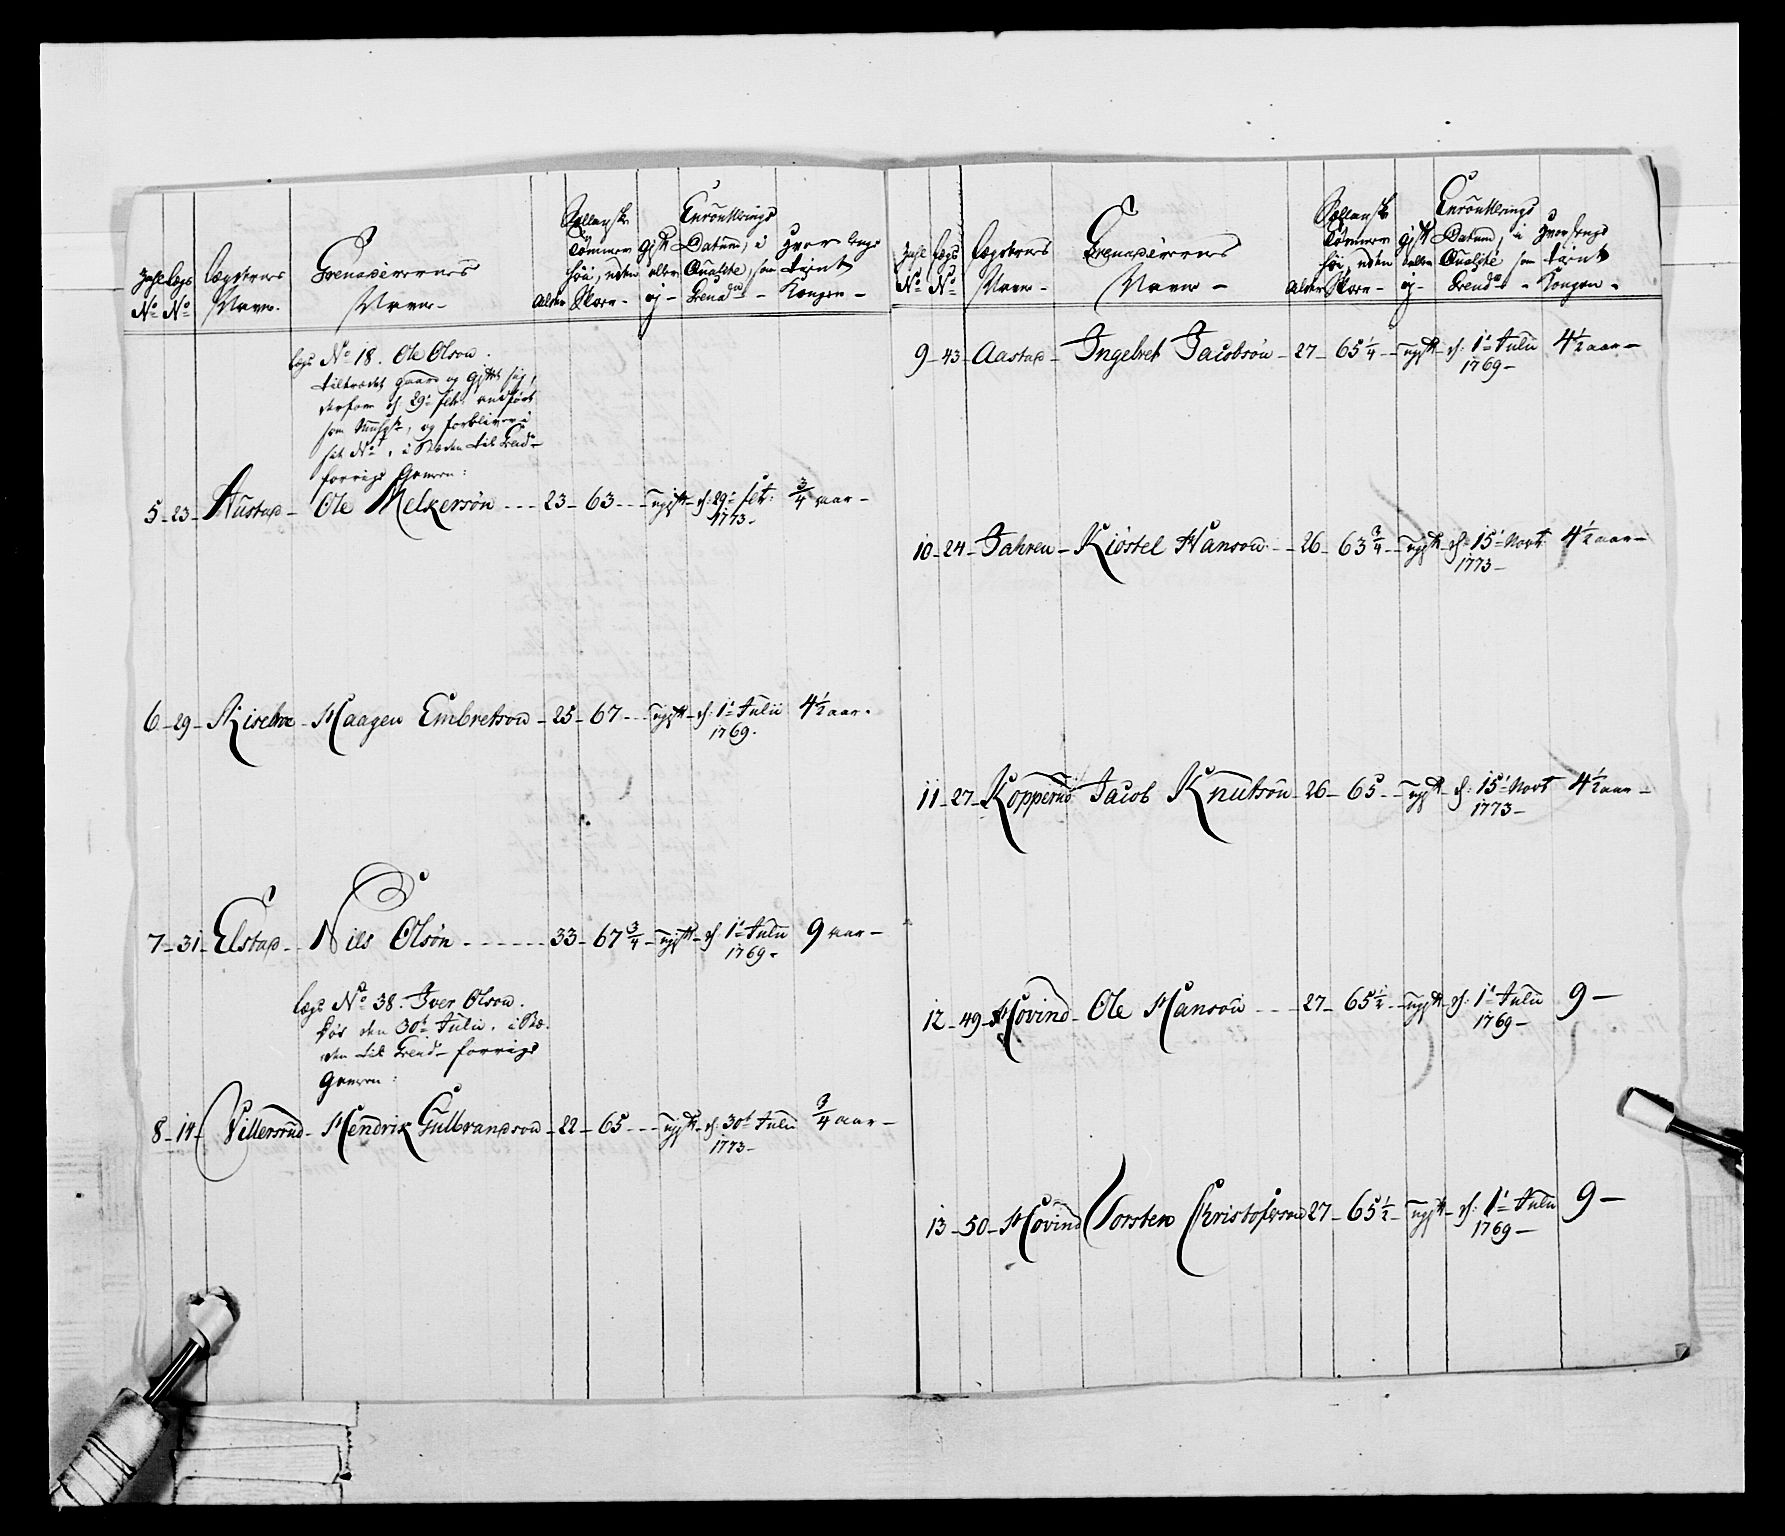 Jafl No Legs No
Legdernes Navn.
Grenadeerernes Navn
Alder
Sællansk Tommer høi, uden Skoe
gift eller ej
Enroullerings Datum, i Qualité, som Grenadr
Hvor lenge tient Kongen
Legs No 18. Ole Olson.
tiltrædet gaard og giftet sig,
derfore d: 29de
som og forbliver i
sit No, i Steden til Grendr
forrige Gevorn:
5 - 23 - Austad - Ole Melkersön - - - 23 - 63 - - ugift - d: 29de 1773 - 3/4 aar -
6 - 29 - Haagen Embretson - 25 - 67 - - ugift - d: 1te Julii 1769. 4 1/2 aar.
7 - 31 - Elstad - Nils Olsön - - - - - 33 - 67 3/4 - ugift - d: 1te Julii 1769 - 9 aar -
Legs No 38. Iver Olson.
døde den 30te Julii. i Ste-
den til Grendr forrige
Gevorn:
8 - 14 - Villersrud - Hendrik Gulbrandson - 22 - 65 - - - ugift - d: 30te Julii 1773 - 3/4 aar -
Jafl No Legs No
Legdernes Navn -
Grenadeerernes Navn -
Alder
Sællansk Tommer høi, uden Skoe -
gift eller ej -
Enroullerings Datum, i Qualité som Grendr -
Hvor lenge tient Kongen -
9 - 43 - Aastad - Ingebret Jacobsön - 27 - 65 1/4 - ugift - d: 1te Julii 1769 - 4 1/2 aar -
10 - 24 - Jahren - Kiöstel Hanson - - 26 - 63 3/4 - ugift - d: 15de Novt 1773 - 4 1/2 aar -
11 - 27 - Kopperud Jacob Knutsön - 26 - 65 - - ugift - d: 15de Novt 1773 - 4 1/2 aar -
12 - 49 - Hovind - Ole Hansön - - - 27 - 65 1/2 - ugift - d: 1te Julii 1769 - 9 -
13 - 50 - Hovind Torsten Christoferson 27 - 65 1/2 - ugift - d: 1te Julii 1769 - 9 -